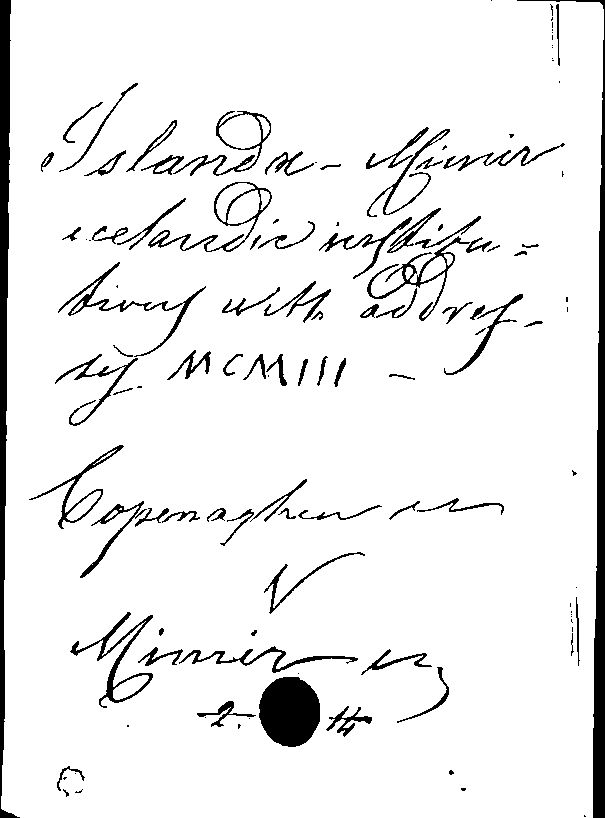 Islandx - Mimir
icelandic institu =
tiones with addres -
ses MCMIII -
Copenaghen
V
Mimir
2. 14